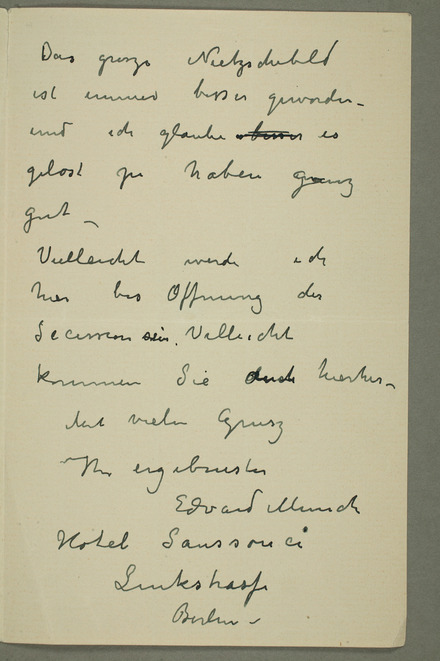 Das grosze Nietzschebild
ist immer besser geworden –
und ich glaube besser es
gelost zu haben ganz
gut –
Vielleicht werde ich
hier bis Offnung der
Secession sein. Villeicht
kommen Sie auch hierher –
Mit vielen Grusz
Ihr ergebenster
Edvard Munch
Hotel Sanssouci
Linkstrasse
Berlin –